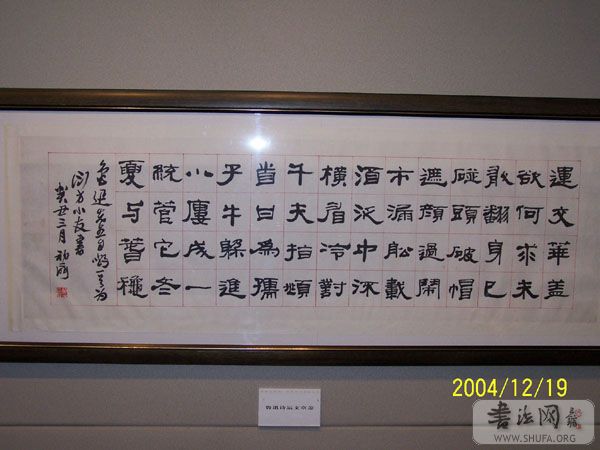 運交華蓋
欲何求未
敢翻身已
碰頭破帽
遮顏過鬧
市漏舩載
酒泛中流
橫眉冷對
千夫指頫
首甘為孺
子牛躲進
小廔成一
統管它冬
夏与萅穐
魯迅先生自嘲一首為
小友書
癸丑三月
2004/12/19
书法网
WWW.SHUFA.ORG